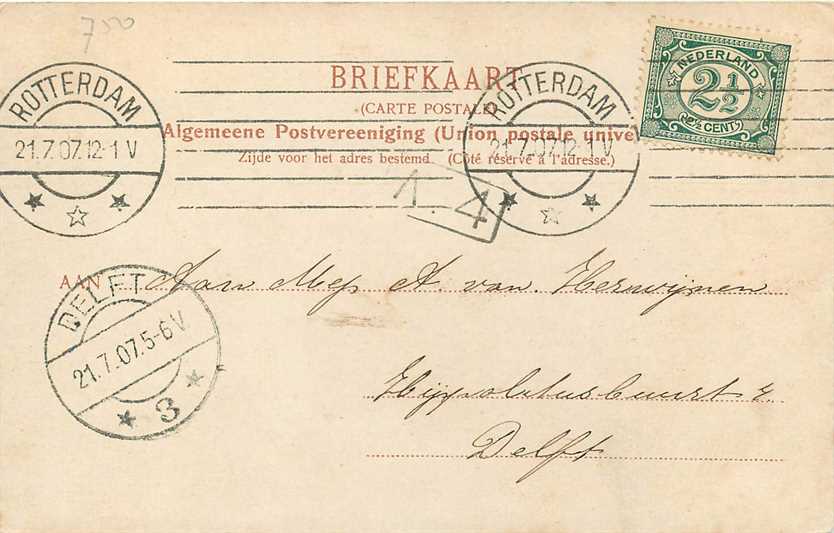 750
BRIEFKAART
(CARTE POSTALE)
Algemeene Postvereeniging (Union postale unive
Zijde voor het adres bestemd. (Côté réservé à l'adresse.)
ROTTERDAM
21.7.07.12-1 V
ROTTERDAM
21.7.07.12-1 V
NEDERLAND
2½
2½ CENT
1.4
AAN Aan Mej A. van Herwijnen
Hippolatusbuurt
Delft
DELFT
21.7.07.5-6V
3